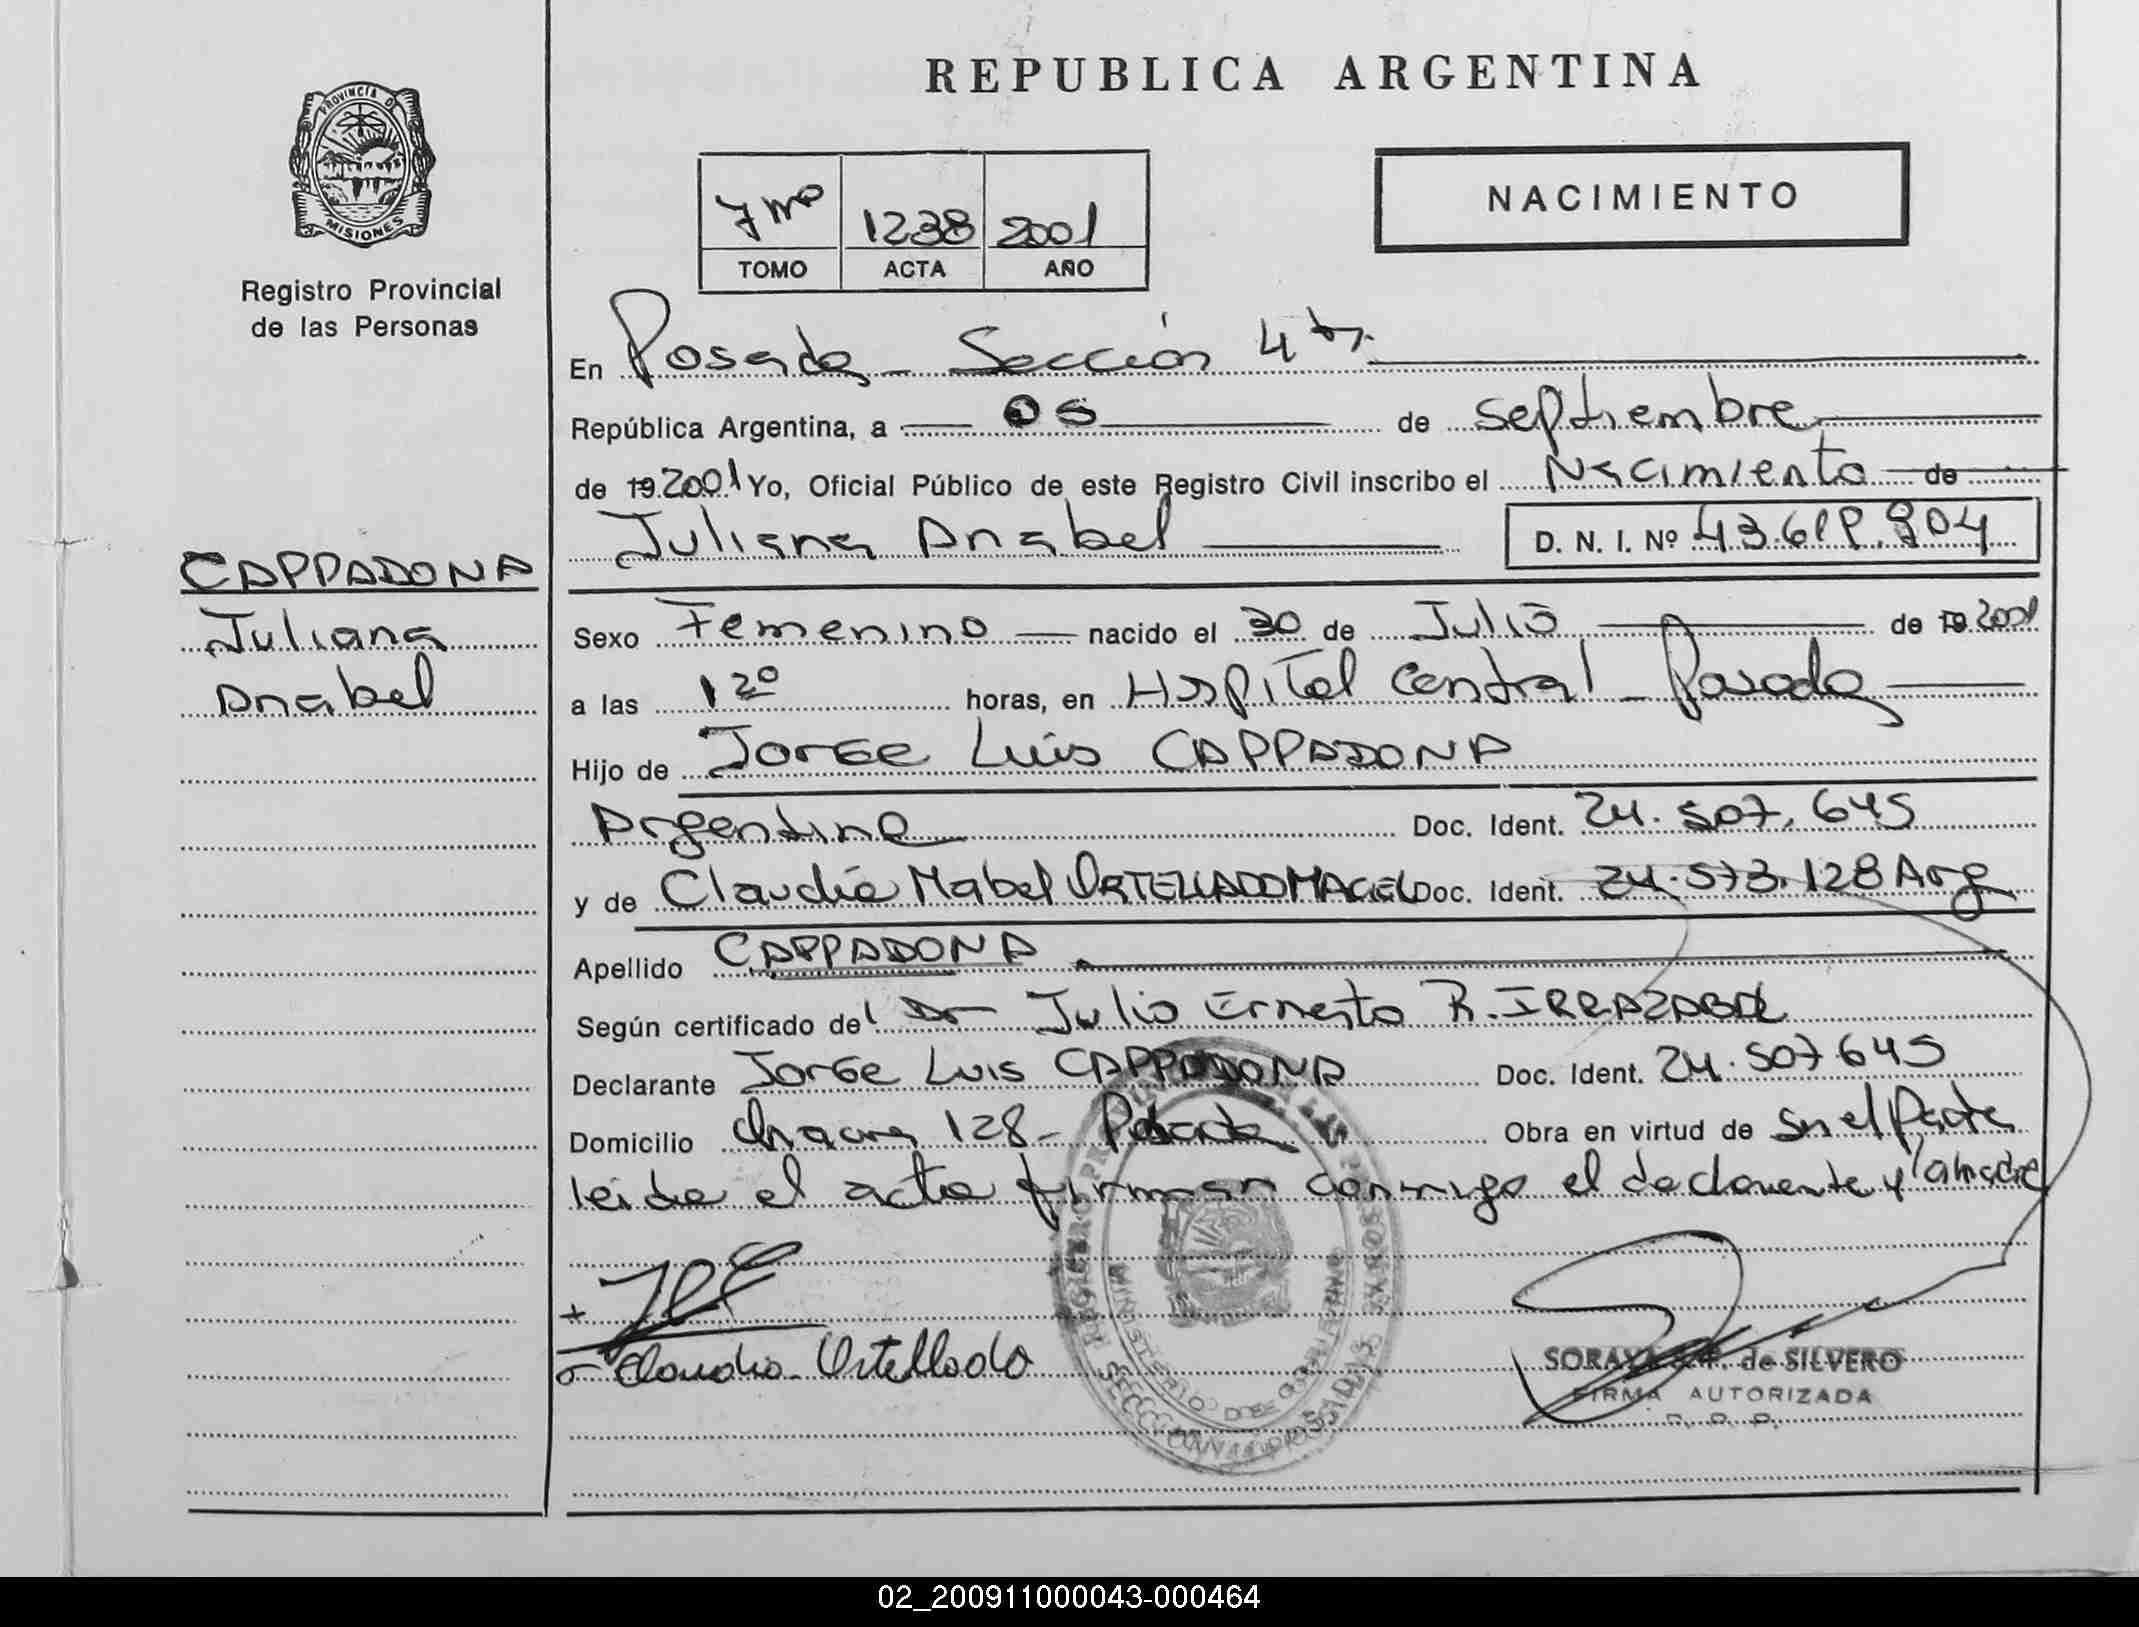 REPUBLICA ARGENTINA
PROVINCIA D
MISIONES
Registro Provincial
de las Personas
7mo 1238 2001
TOMO ACTA AÑO
NACIMIENTO
En Posadas Sección 4ta
República Argentina, a 05 de septiembre
de 19 2001 Yo, Oficial Público de este Registro Civil inscribo el Nacimiento de
Juliana Anabel D. N. I. Nº
CAPPADONA
Juliana
Anabel
Sexo Femenino nacido el 30 de Julio de 19 2001
a las 12º horas, en Hospital Central - Posadas
Hijo de Jorge Luis CAPPADONA
Argentino Doc. Ident. 24.507.645
y de Claudia Mabel ORTELLADO MACIEL Doc. Ident. 24.573.128 Arg
Apellido CAPPADONA
Según certificado del Dr Julio Ernesto R. IRRAZABAL
Declarante Jorge Luis CAPPADONA Doc. Ident. 24.507.645
Domicilio Chacra 128 - Posadas Obra en virtud de
leida el acta firman conmigo el declarante y la madre
Claudia Ortellado
SORAYA de SILVERO
FIRMA AUTORIZADA
02_200911000043-000464